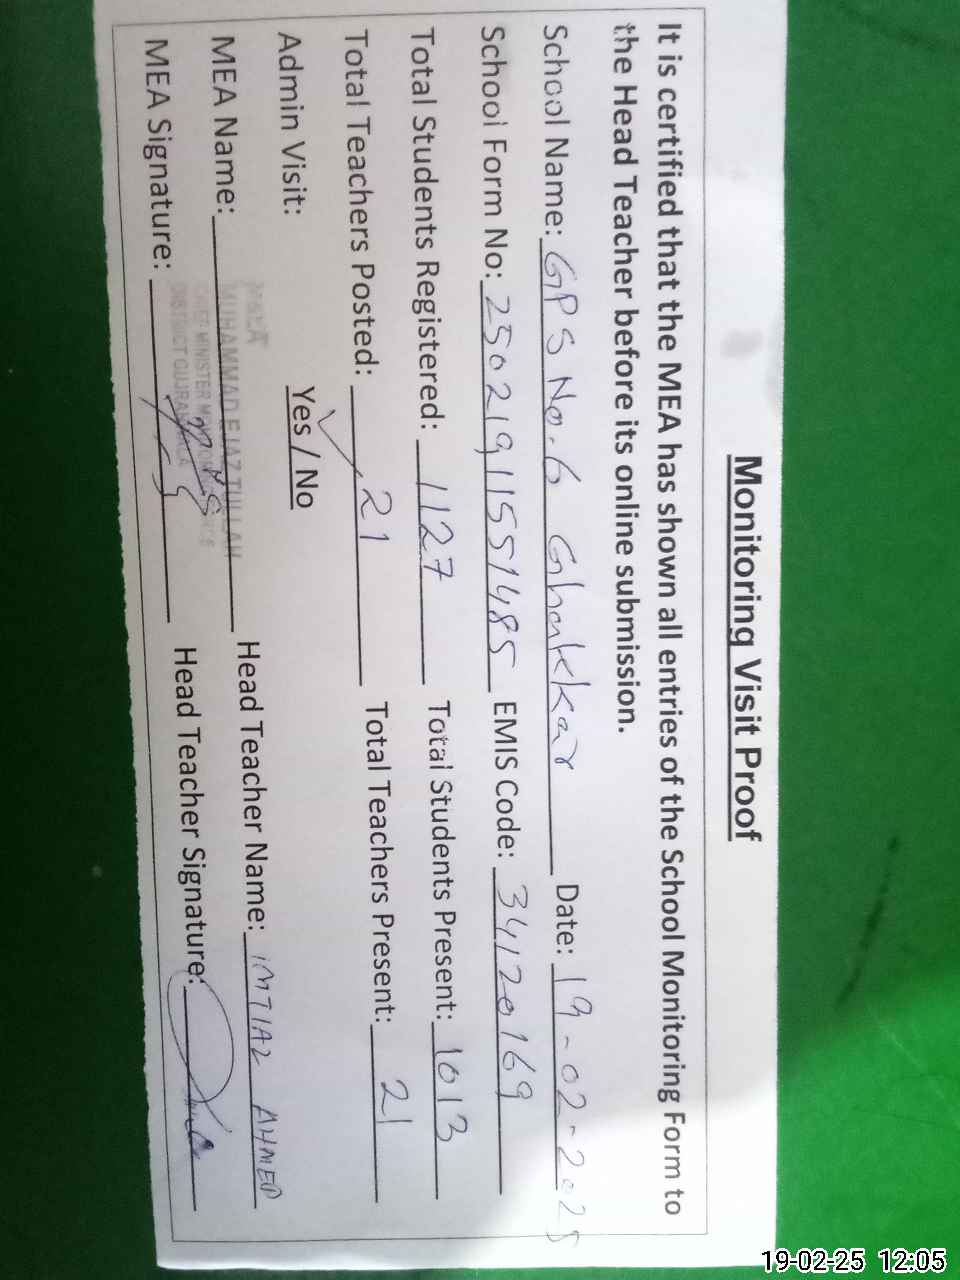 Monitoring Visit Proof
It is certified that the MEA has shown all entries of the School Monitoring Form to
the Head Teacher before its online submission.
School Name: GPS No.6 Ghakkar Date: 19-02-2025
School Form No: 25021911551485 EMIS Code: 34120169
Total Students Registered: 1127 Total Students Present: 1013
Total Teachers Posted: 21 Total Teachers Present: 21
Admin Visit: Yes / No
MEA Name: Head Teacher Name: IMTIAZ AHMED
MEA Signature: Head Teacher Signature:
M&EA
MUHAMMAD EJAZ TULLAH
CHIEF MINISTER
DISTRICT GUJRANWALA
19-02-25 12:05